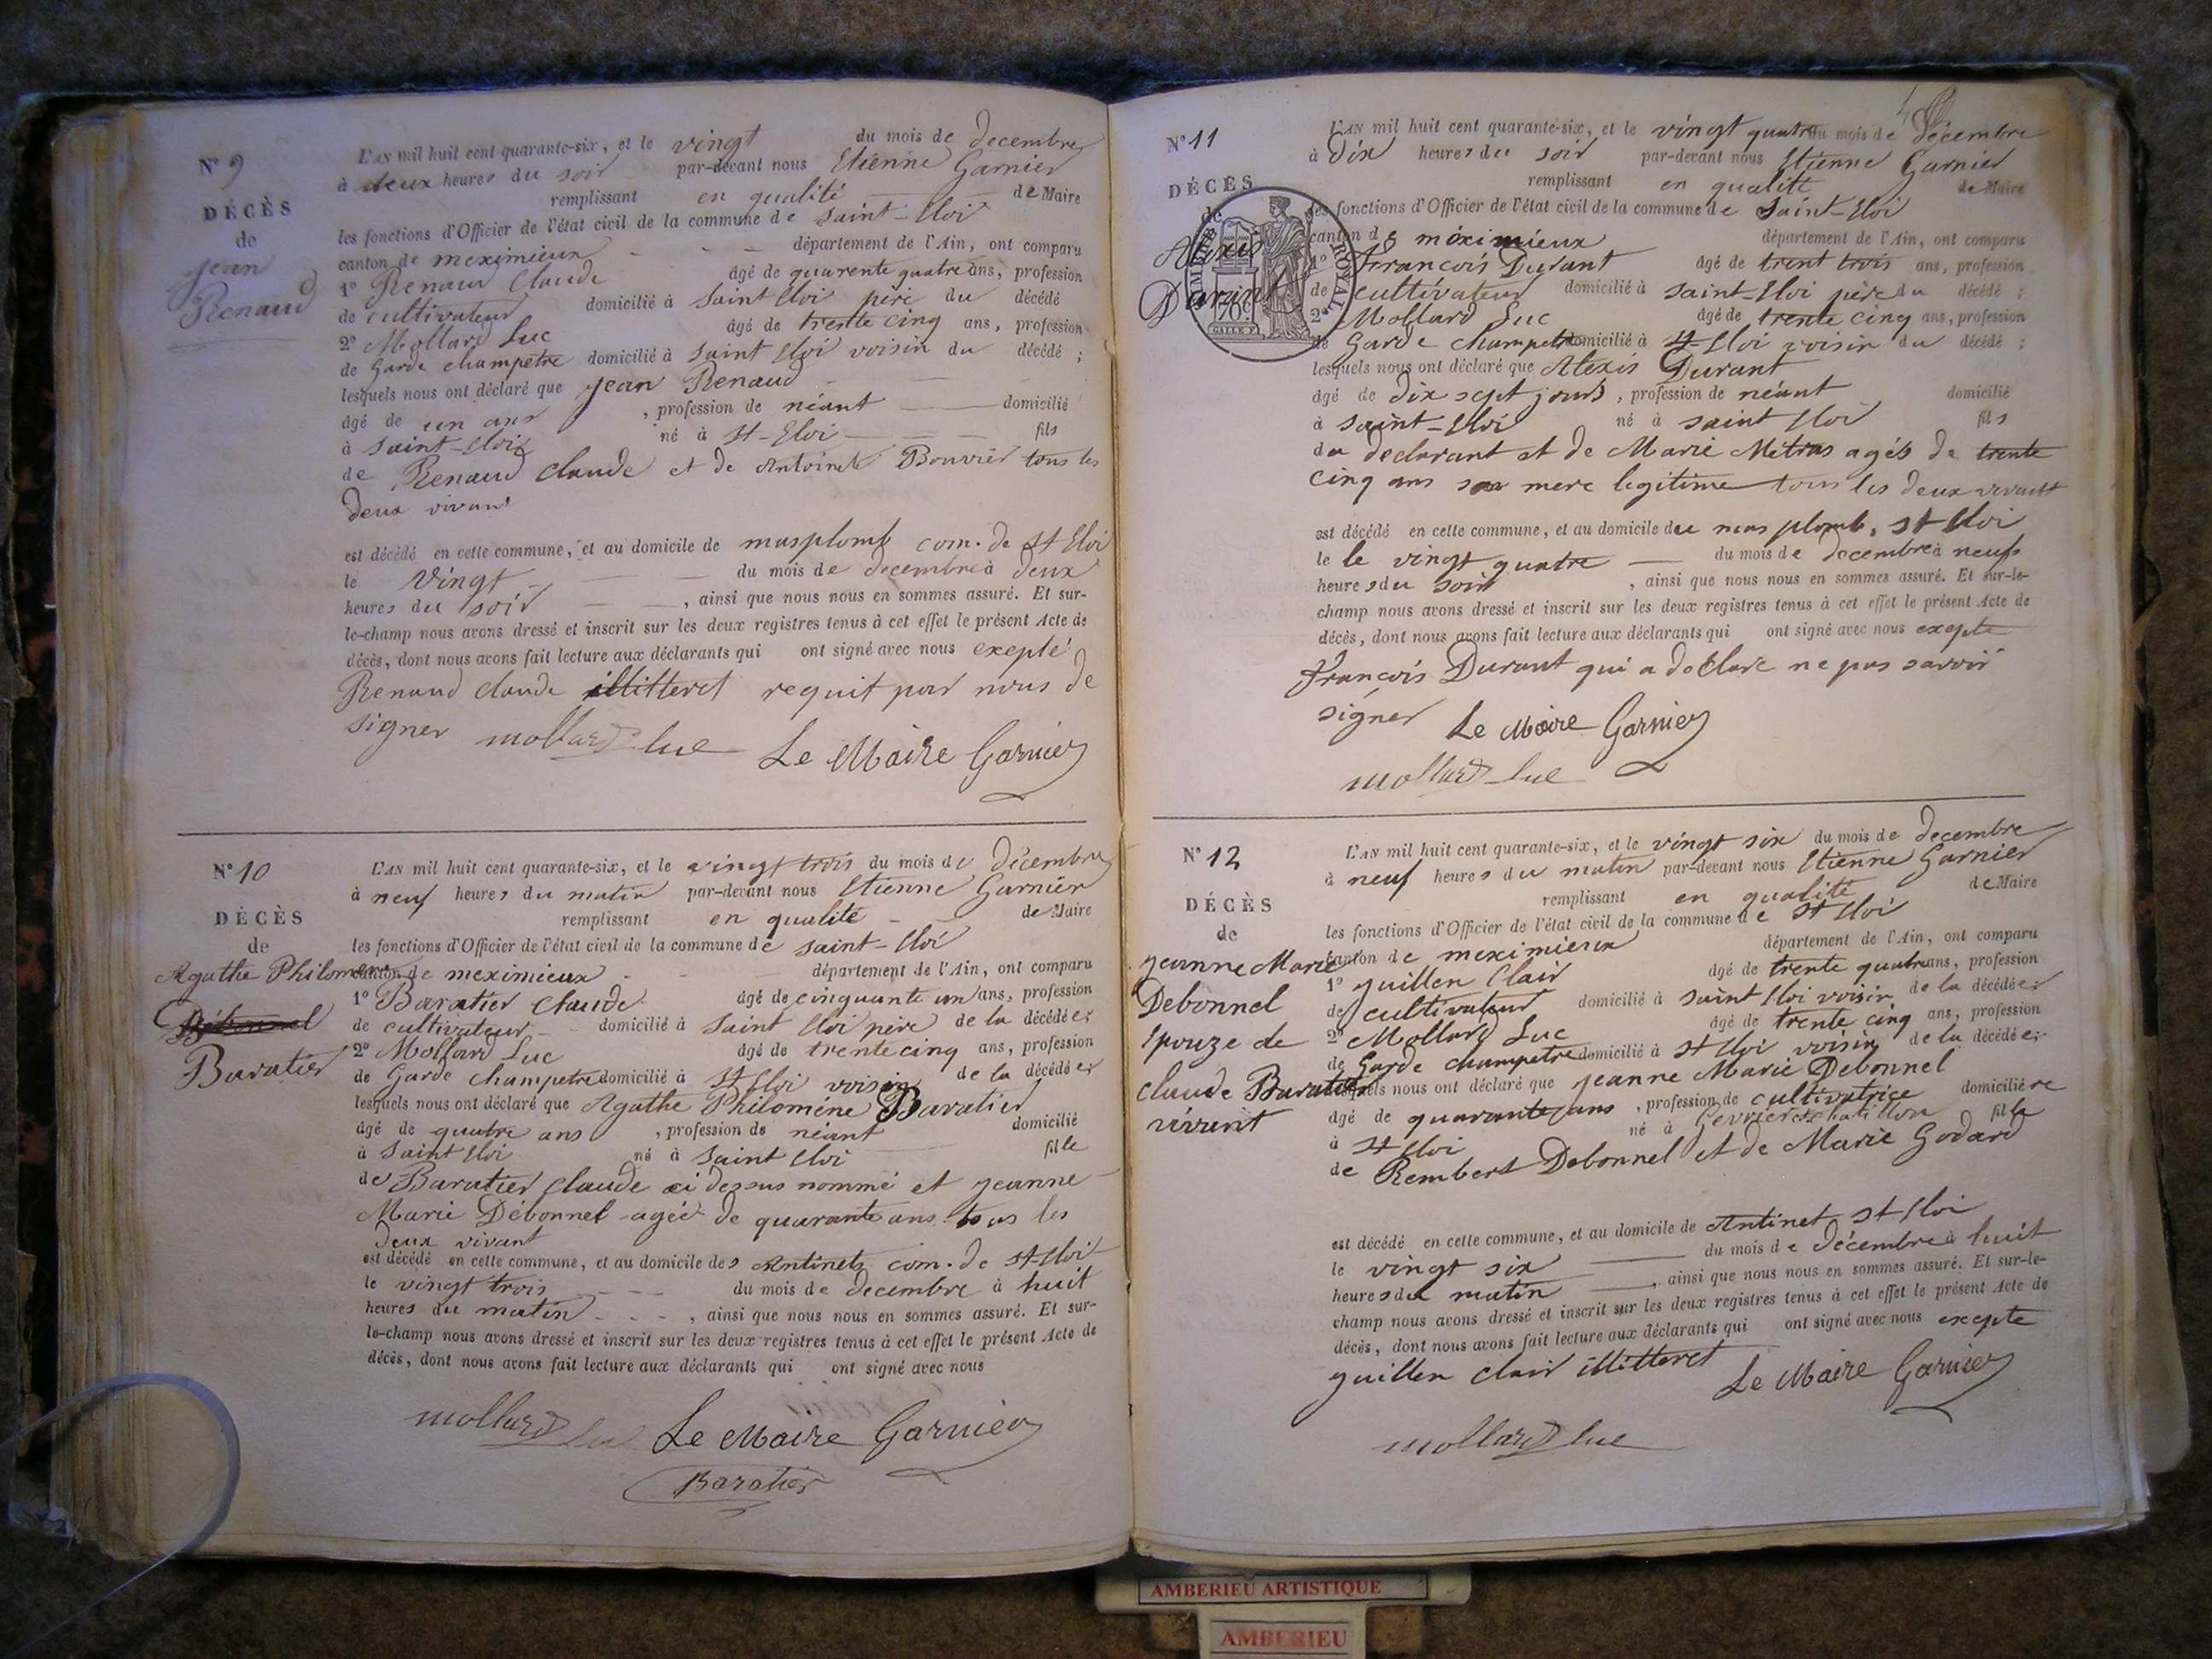 N° 9
DÉCÈS
de
jean
Renaud
L'AN mil huit cent quarante-six, et le vingt du mois de decembre
à deux heures du soir par-devant nous Etienne Garnier
remplissant en qualité de Maire
les fonctions d'Officier de l'état civil de la commune de Saint-Eloi
canton de meximieux département de l'Ain, ont comparu
1° Renaud Claude âgé de quarente quatre ans, profession
de cultivateur domicilié à Saint Eloi père du décédé
2° Mollard Luc âgé de trente cinq ans, profession
de Garde champetre domicilié à Saint Eloi voisin du décédé ;
lesquels nous ont déclaré que jean Renaud
âgé de un ans, profession de néant domicilié
à Saint-Eloi né à St-Eloi fils
de Renaud Claude et de Antoinete Bouvier tous les
deux vivant
est décédé en cette commune, et au domicile de masplomb com. de St Eloi
le Vingt du mois de decembre à deux
heures du soir, ainsi que nous nous en sommes assuré. Et sur-
le-champ nous avons dressé et inscrit sur les deux registres tenus à cet effet le présent Acte de
décès, dont nous avons fait lecture aux déclarants qui ont signé avec nous exepté
Renaud claude illitteret requit par nous de
signer mollard luc Le Maire Garnier
N° 10
DÉCÈS
de
Agathe Philomene
Débonnel
Baratier
L'AN mil huit cent quarante-six, et le vingt trois du mois de décembre
à neuf heures du matin par-devant nous Etienne Garnier
remplissant en qualité de Maire
les fonctions d'Officier de l'état civil de la commune de saint-Eloi
canton de meximieux département de l'Ain, ont comparu
1° Baratier claude âgé de cinquante un ans, profession
de cultivateur domicilié à Saint Eloi père de la décédée;
2° Mollard Luc âgé de trente cinq ans, profession
de Garde champetre domicilié à St Eloi voisin de la décédée;
lesquels nous ont déclaré que Agathe Philoméne Baratier
âgé de quatre ans, profession de néant domicilié
à Saint Eloi né à Saint Eloi fille
de Baratier claude ci dessus nommé et jeanne
Marie Débonnel agée de quarante ans tous les
deux vivant
est décédé en cette commune, et au domicile des Antinets com. de St-Eloi
le vingt trois du mois de decembre à huit
heures du matin, ainsi que nous nous en sommes assuré. Et sur-
le-champ nous avons dressé et inscrit sur les deux registres tenus à cet effet le présent Acte de
décès, dont nous avons fait lecture aux déclarants qui ont signé avec nous
mollard luc Le Maire Garnier
Baratier
N° 11
DÉCÈS
de
Alexis
Durant
TIMBRE ROYAL
70c
L'AN mil huit cent quarante-six, et le vingt quatre du mois de décembre
à dix heures du soir par-devant nous Etienne Garnier
remplissant en qualité de Maire
les fonctions d'Officier de l'état civil de la commune de Saint-Eloi
canton de méximieux département de l'Ain, ont comparu
1° Francois Durant âgé de trent trois ans, profession
de cultivateur domicilié à saint-Eloi père du décédé ;
2° Mollard Luc âgé de trente cinq ans, profession
de Garde champetre domicilié à St-Eloi voisin du décédé ;
lesquels nous ont déclaré que Alexis Durant
âgé de dix sept jours, profession de néant domicilié
à saint-Eloi né à saint Eloi fils
du declarant et de Marie Métras agés de trente
cinq ans sa mere legitime tous les deux vivant
est décédé en cette commune, et au domicile du mas plomb, st Eloi
le le vingt quatre du mois de decembre à neuf
heures du soir, ainsi que nous nous en sommes assuré. Et sur-le-
champ nous avons dressé et inscrit sur les deux registres tenus à cet effet le présent Acte de
décès, dont nous avons fait lecture aux déclarants qui ont signé avec nous exepte
françois Durant qui a déclaré ne pas savoir
signer Le Maire Garnier
mollard luc
N° 12
DÉCÈS
de
jeanne Marie
Debonnel
Epouze de
claude Baratier
vivant
L'AN mil huit cent quarante-six, et le vingt six du mois de decembre
à neuf heures du matin par-devant nous Etienne Garnier
remplissant en qualité de Maire
les fonctions d'Officier de l'état civil de la commune de St Eloi
canton de meximieux département de l'Ain, ont comparu
1° guillen Clair âgé de trente quatre ans, profession
de cultivateur domicilié à saint Eloi voisin de la décédée;
2° Mollard Luc âgé de trente cinq ans, profession
de Garde champetre domicilié à St Eloi voisin de la décédée;
lesquels nous ont déclaré que jeanne Marie Debonnel
âgé de quarante ans, profession de cultivatrice domiciliére
à St Eloi né à chatillon fille
de Rembert Debonnel et de Marie Godard
est décédé en cette commune, et au domicile de Antinet St Eloi
le vingt six du mois de décembre à huit
heures du matin, ainsi que nous nous en sommes assuré. Et sur-le-
champ nous avons dressé et inscrit sur les deux registres tenus à cet effet le présent Acte de
décès, dont nous avons fait lecture aux déclarants qui ont signé avec nous excepte
guillen clair illitteret Le Maire Garnier
mollard luc
AMBERIEU ARTISTIQUE
AMBERIEU